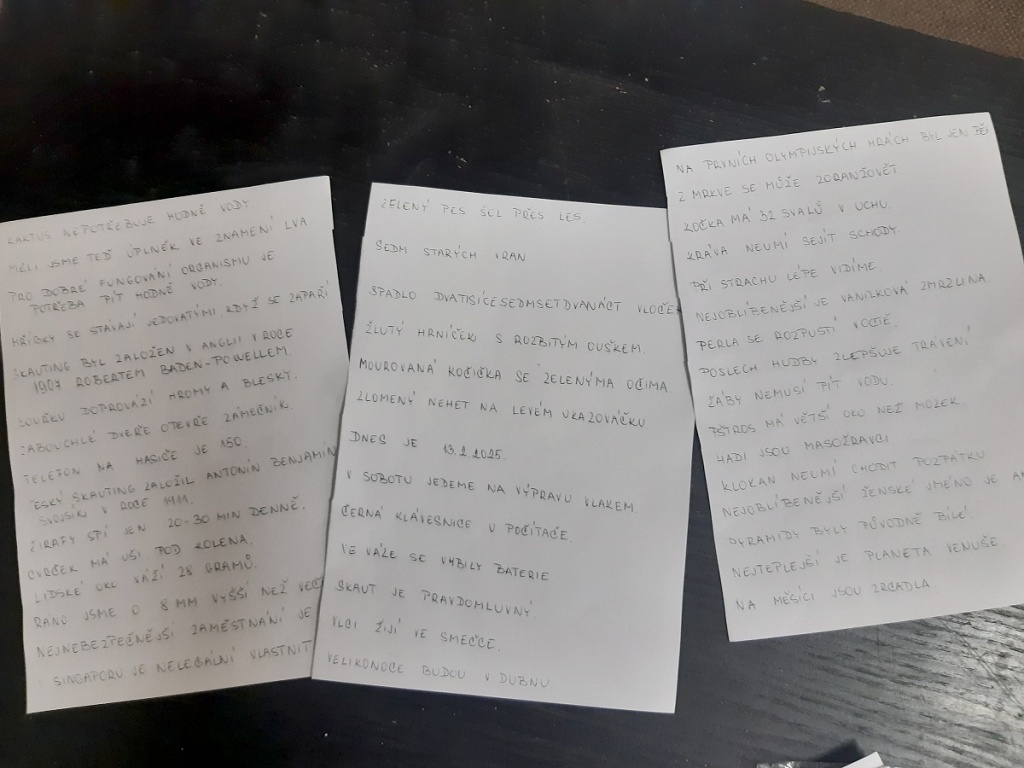 KAKTUS NEPOTŘEBUJE HODNĚ VODY.
MĚLI JSME TEĎ ÚPLNĚK VE ZNAMENÍ LVA
PRO DOBRÉ FUNGOVÁNÍ ORGANISMU JE
POTŘEBA PÍT HODNĚ VODY.
HŘÍBKY SE STÁVAJÍ JEDOVATÝMI, KDYŽ SE ZAPAŘÍ
SKAUTING BYL ZALOŽEN V ANGLII V ROCE
1907 ROBERTEM BADEN-POWELLEM.
BOUŘKU DOPROVÁZÍ HROMY A BLESKY.
ZABOUCHLÉ DVEŘE OTEVŘE ZÁMEČNÍK.
TELEFON NA HASIČE JE 150.
ČESKÝ SKAUTING ZALOŽIL ANTONÍN BENJAMIN
SVOJSÍK V ROCE 1911.
ŽIRAFY SPÍ JEN 20-30 MIN DENNĚ.
CVRČEK MÁ UŠI POD KOLENA.
LIDSKÉ OKO VÁŽÍ 28 GRAMŮ.
RÁNO JSME O 8 MM VYŠŠÍ NEŽ VEČ
NEJNEBEZPEČNĚJŠÍ ZAMĚSTNÁNÍ JE
SINGAPORU JE NELEGÁLNÍ VLASTNIT
ZELENÝ PES ŠEL PŘES LES.
SEDM STARÝCH VRAN
SPADLO DVATISÍCESEDMSETDVANÁCT VLOČEK
ŽLUTÝ HRNÍČEK S ROZBITÝM OUŠKEM.
MOUROVANÁ KOČIČKA SE ZELENÝMA OČIMA.
ZLOMENÝ NEHET NA LEVÉM UKAZOVÁČKU
DNES JE 13.2.2025.
V SOBOTU JEDEME NA VÝPRAVU VLAKEM.
ČERNÁ KLÁVESNICE U POČÍTAČE.
VE VÁZE SE VYBILY BATERIE
SKAUT JE PRAVDOMLUVNÝ
VLCI ŽIJÍ VE SMEČCE.
VELIKONOCE BUDOU V DUBNU
NA PRVNÍCH OLYMPIJSKÝCH HRÁCH BYL JEN BĚ
Z MRKVE SE MŮŽE ZORANŽOVĚT
KOČKA MÁ 32 SVALŮ V UCHU.
KRÁVA NEUMÍ SEJÍT SCHODY.
PŘI STRACHU LÉPE VIDÍME.
NEJOBLÍBENĚJŠÍ JE VANILKOVÁ ZMRZLINA
PERLA SE ROZPUSTÍ V OCTĚ.
POSLECH HUDBY ZLEPŠUJE TRÁVENÍ
ŽÁBY NEMUSÍ PÍT VODU.
PŠTROS MÁ VĚTŠÍ OKO NEŽ MOZEK.
HADI JSOU MASOŽRAVCI
KLOKAN NEUMÍ CHODIT POZPÁTKU
NEJOBLÍBENĚJŠÍ ŽENSKÉ JMÉNO JE AN
PYRAMIDY BYLY PŮVODNĚ BÍLÉ.
NEJTEPLEJŠÍ JE PLANETA VENUŠE.
NA MĚSÍCI JSOU ZRCADLA